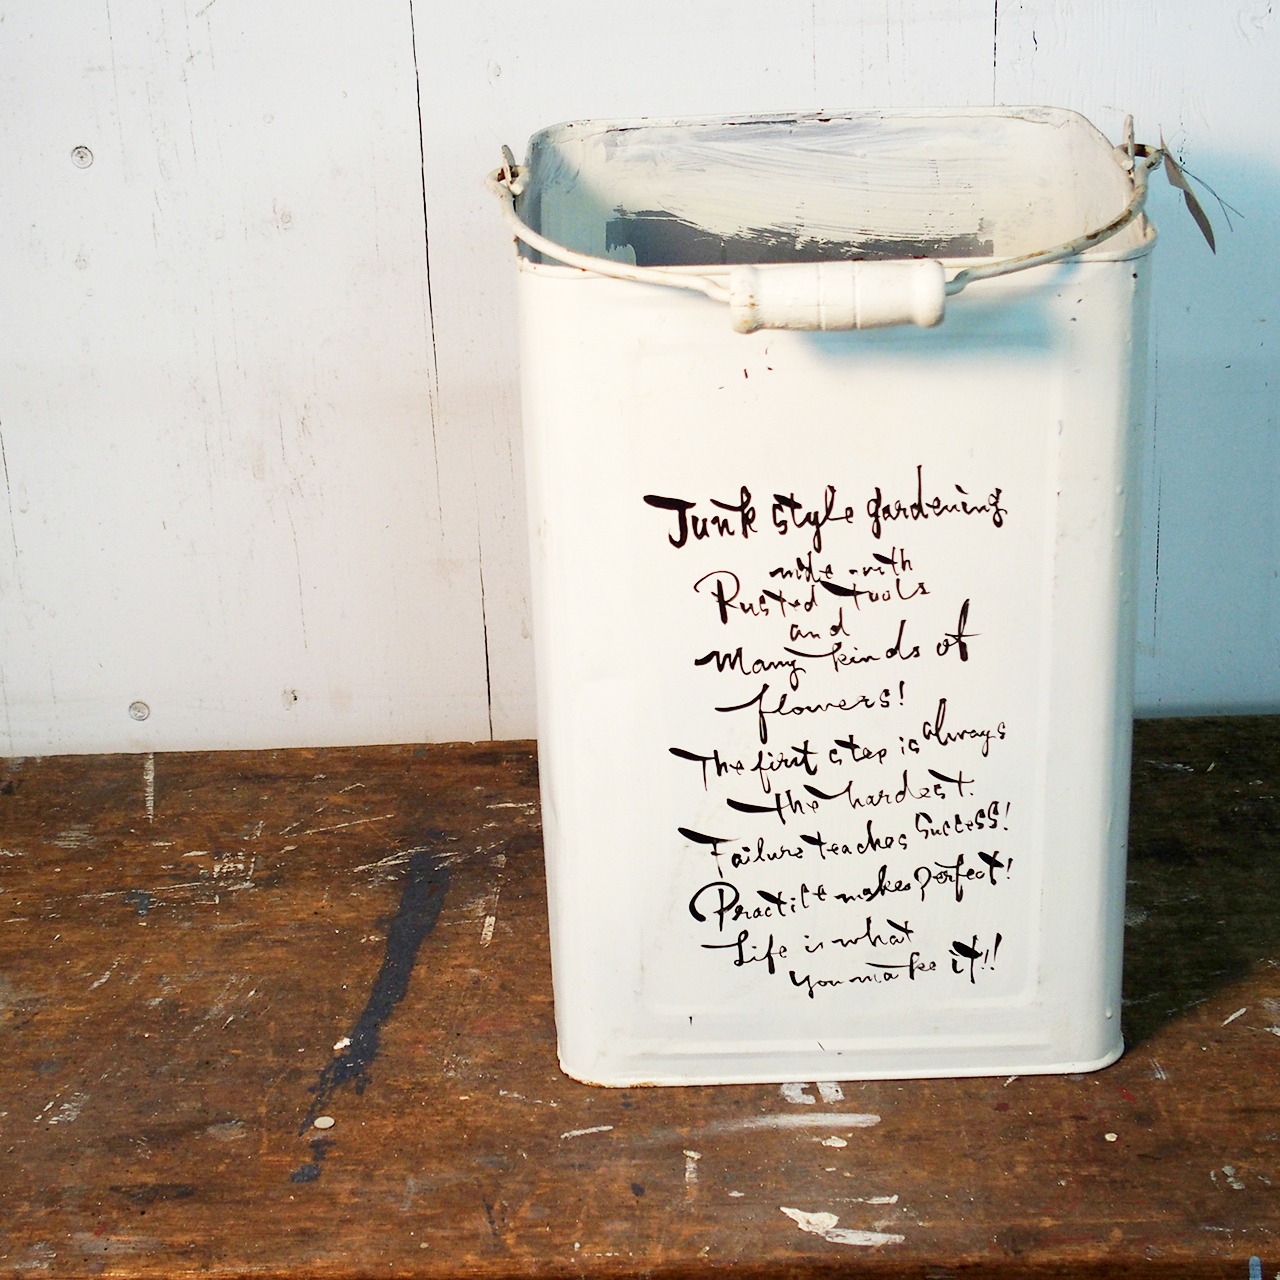 Junk style gardening
made with
Rusted tools
and
Many kinds of
flowers!
The first step is always
the hardest.
Failure teaches Success!
Practice makes Perfect!
Life is what
you make it!!